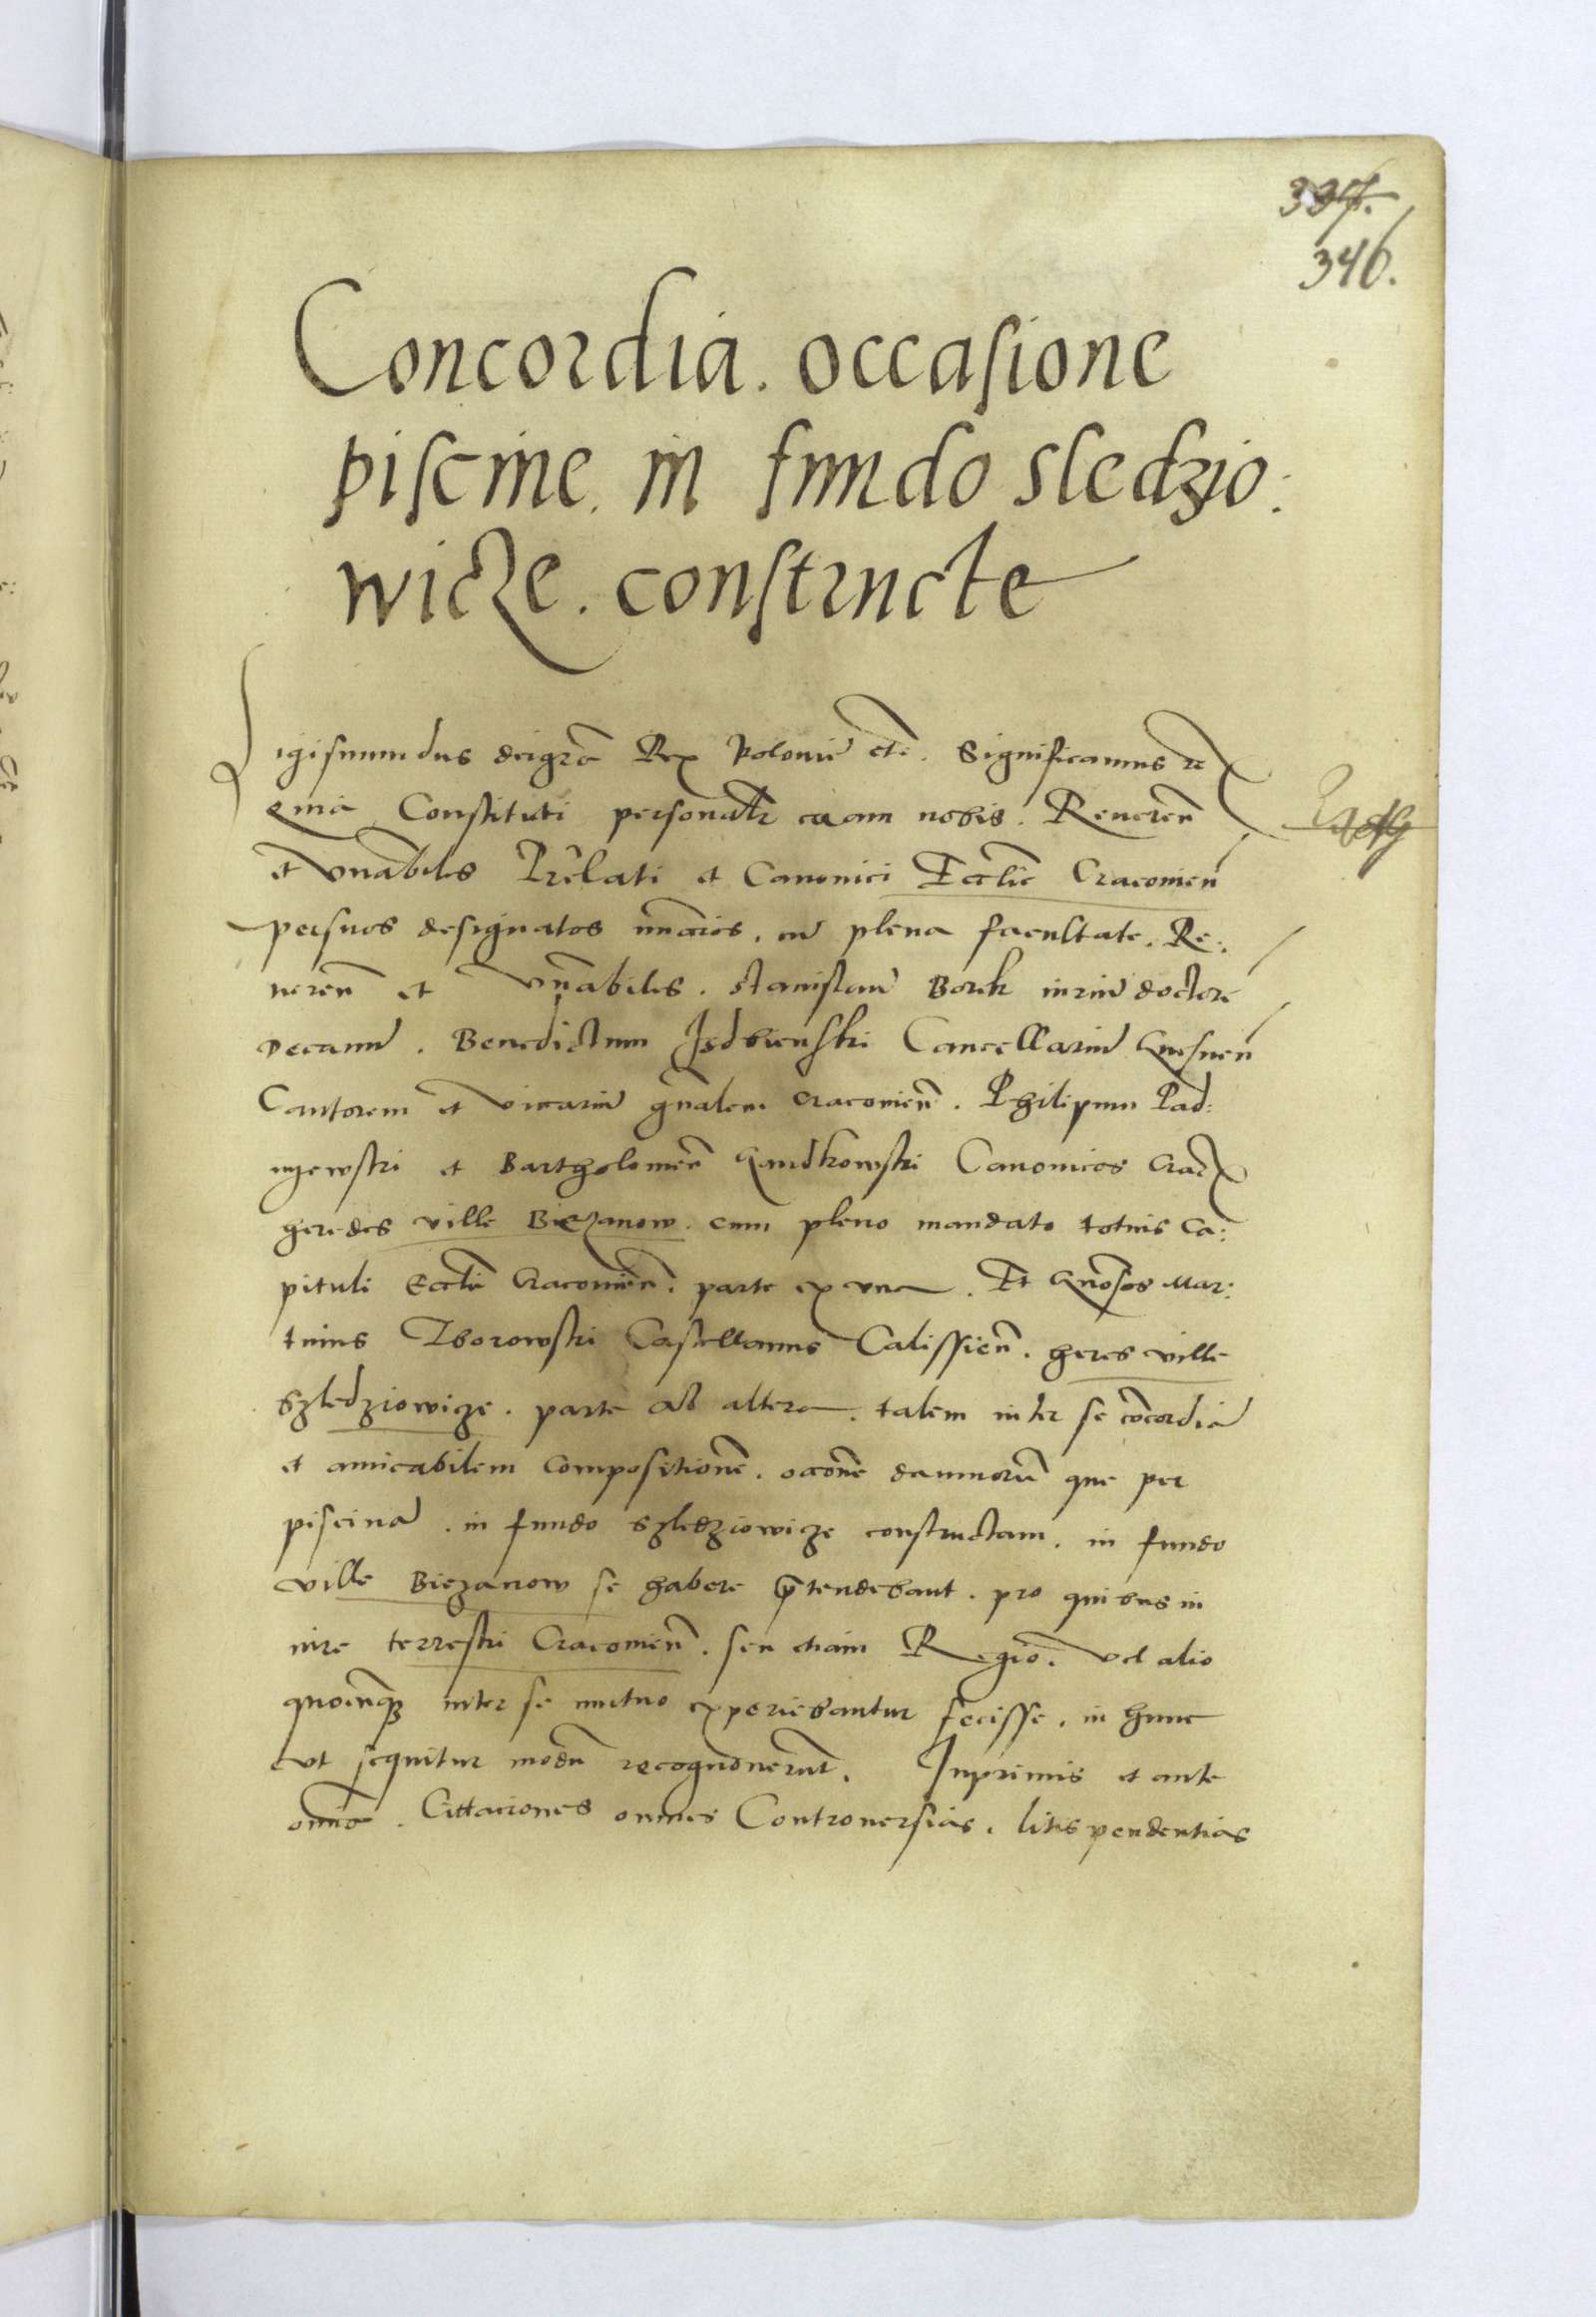 337.
346.
Concordia. occasione
piscine. in fundo Sledzio:
wicze. constructe
Sigismundus deigrã Rex Polonie etc. Significamus etc
Quia Constituti personalr coram nobis. Reveren
et Vnabiles Prelati et Canonici Ecclie Cracovien
persuos designatos nuncios. cu plena facultate. Re:
veren et Vnabiles. Stanislau Borek iuriu doctore
Decanu. Benedictum Isdbienski Cancellariu Gnesnen
Cantorem et Vicariu gnalem Cracovien. Philipum Pad:
nyewski et Bartholomeu Gandkowski Canonicos Crac
heredes ville Biezanow. cum pleno mandato totius Ca:
pituli Ecclie Cracovien. parte ex vna. Et Gnosos Mar:
tinus Zborowski Castellanus Calissien. heres ville
Szledziowicze. parte ab altera. talem inter se cocordia
et amicabilem compositione. occone damnoru que per
piscina. in fundo Szledziowicze constructam. in fundo
ville Biezanow se habere ptendebant. pro quibus in
iure terrestri Cracovien. seu etiam Regio. vel alio
quocunq inter se mutuo experiebantur fecisse. in hunc
vt sequitur modu recognouerut. Inprimis et ante
omia. Cittaciones omnes Controuersias. litis pendentias